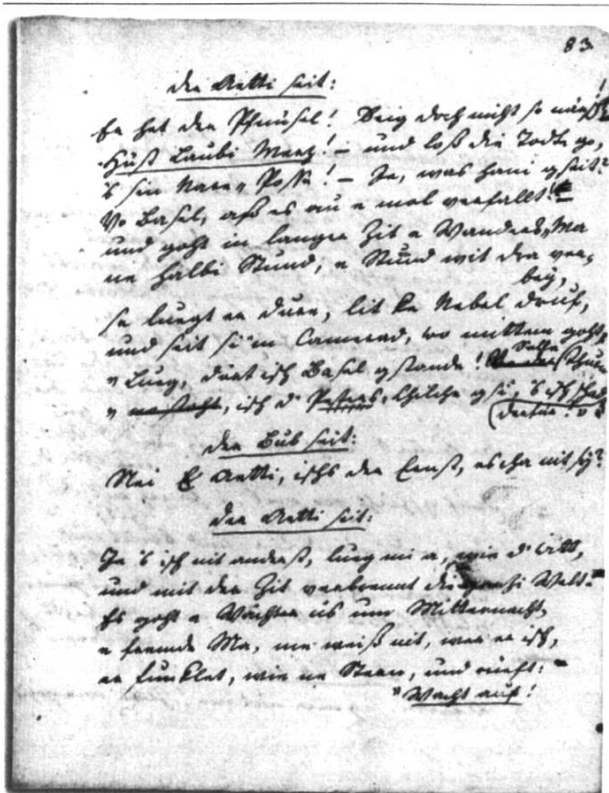 83
Der Aetti seit:
Er het der Pfnüsel! Zeig doch nicht so
Hüst Laubi Merz! – und loß die Todte go,
's sin Nare Posse! – Je, was hani gseit?
Vo Basel, aß es au e mol verfallt!
und goht in langer Zit e Wanders-Ma
ne halbi Stund, e Stund wit dra ver-
bey,
se luegt er dure, lit ke Nebel druf,
und seit si'm Camerad, wo mittem goht,
" Lueg, dört isch Basel gstande! Selle Thurn
" isch d' Peters Chilche gsi, 's isch schad
derfür! "
Der Bub seit:
Nei Aetti, ischs der Ernst, es cha nit sy?
Der Aetti seit:
Je 's isch nit anderst, lueg mi a, wie d' witt,
und mit der Zit verbrennt die ganzi Welt.
Es goht e Wächter us um Mitternacht,
e fremde Ma, me weiß nit, wer er isch,
er funklet, wie ne Stern, und rüeft:
" Wacht auf!